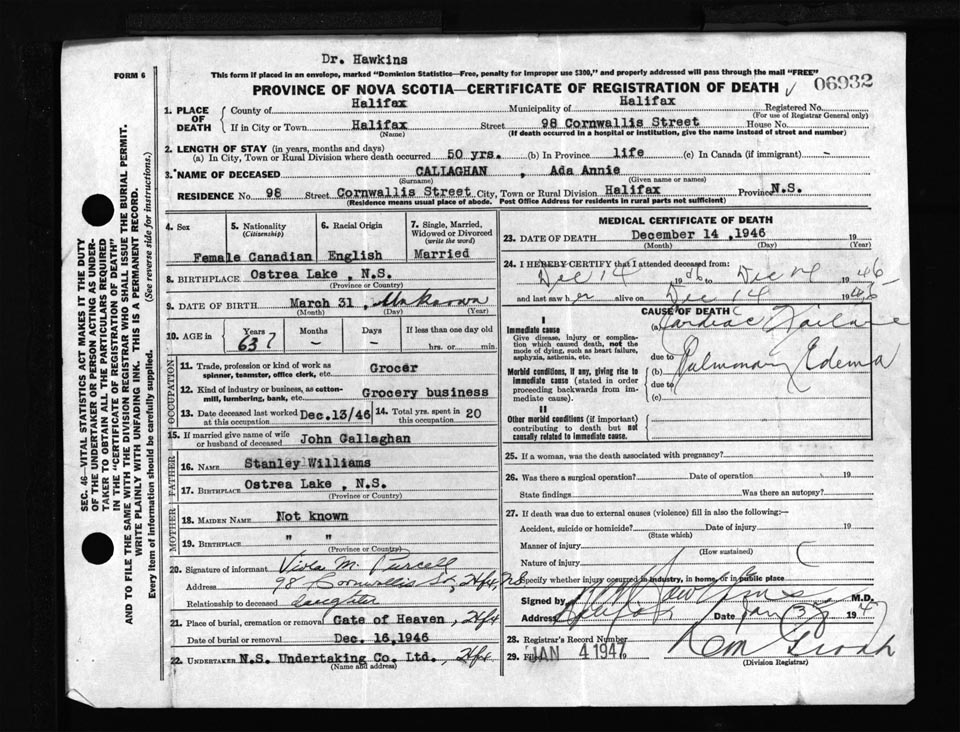 Dr. Hawkins
FORM 6
This form if placed in an envelope, marked "Dominion Statistics—Free, penalty for improper use $300," and properly addressed will pass through the mail "FREE"
PROVINCE OF NOVA SCOTIA—CERTIFICATE OF REGISTRATION OF DEATH 06932
1. PLACE OF DEATH
County of Halifax Municipality of Halifax Registered No.
(For use of Registrar General only)
If in City or Town Halifax Street 98 Cornwallis Street House No.
(Name) (If death occurred in a hospital or institution, give the name instead of street and number)
2. LENGTH OF STAY (in years, months and days)
(a) In City, Town or Rural Division where death occurred 50 yrs. (b) In Province life (c) In Canada (if immigrant) -
3. NAME OF DECEASED CALLAGHAN , Ada Annie
(Surname) (Given name or names)
RESIDENCE No. 98 Street Cornwallis Street City, Town or Rural Division Halifax Province N.S.
(Residence means usual place of abode. Post Office Address for residents in rural parts not sufficient)
4. Sex 5. Nationality (Citizenship) 6. Racial Origin 7. Single, Married, Widowed or Divorced (write the word)
Female Canadian English Married
8. BIRTHPLACE Ostrea Lake , N.S.
(Province or Country)
9. DATE OF BIRTH March 31, Unknown
(Month) (Day) (Year)
10. AGE in Years Months Days If less than one day old
63? - - hrs. or min.
OCCUPATION
11. Trade, profession or kind of work as spinner, teamster, office clerk, etc. Grocer
12. Kind of industry or business, as cotton-mill, lumbering, bank, etc. Grocery business
13. Date deceased last worked at this occupation Dec.13/46 14. Total yrs. spent in 20
15. If married give name of wife or husband of deceased John Callaghan
FATHER
16. NAME Stanley Williams
17. BIRTHPLACE Ostrea Lake , N.S.
(Province or Country)
MOTHER
18. MAIDEN NAME Not known
19. BIRTHPLACE " "
(Province or Country)
20. Signature of informant Viola M. Purcell
Address 98 Cornwallis St, Hfx, N.S.
Relationship to deceased daughter
21. Place of burial, cremation or removal Gate of Heaven , Hfx
Date of burial or removal Dec. 16,1946
22. UNDERTAKER N.S. Undertaking Co. Ltd., Hfx
(Name and address)
MEDICAL CERTIFICATE OF DEATH
23. DATE OF DEATH December 14 ,1946
(Month) (Day) (Year)
24. I HEREBY CERTIFY that I attended deceased from:
Dec 14 1946 to Dec 14 1946
and last saw her alive on Dec 14 1946
CAUSE OF DEATH
I
Immediate cause
Give disease, injury or complication which caused death, not the mode of dying, such as heart failure, asphyxia, asthenia, etc.
(a) Cardiac Failure
due to
Morbid conditions, if any, giving rise to immediate cause (stated in order proceeding backwards from immediate cause).
(b) Pulmonary Edema
due to
(c)
II
Other morbid conditions (if important) contributing to death but not causally related to immediate cause.
25. If a woman, was the death associated with pregnancy?
26. Was there a surgical operation? Date of operation 19
State findings Was there an autopsy?
27. If death was due to external causes (violence) fill in also the following:—
Accident, suicide or homicide? Date of injury 19
(State which)
Manner of injury
(How sustained)
Nature of injury
Specify whether injury occurred in industry, in home, or in public place
Signed by Hawkins M.D.
Address Halifax Date Jan 3 1947
28. Registrar's Record Number
29. Filed JAN 4 1947 19
(Division Registrar)
SEC. 46—VITAL STATISTICS ACT MAKES IT THE DUTY
OF THE UNDERTAKER OR PERSON ACTING AS UNDER-
TAKER TO OBTAIN ALL THE PARTICULARS REQUIRED
IN THE "CERTIFICATE OF REGISTRATION OF DEATH"
AND TO FILE THE SAME WITH THE DIVISION REGISTRAR WHO SHALL ISSUE THE BURIAL PERMIT.
WRITE PLAINLY WITH UNFADING INK. THIS IS A PERMANENT RECORD.
Every item of information should be carefully supplied. (See reverse side for instructions.)